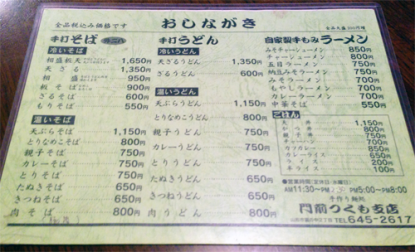 全品税込み価格です
おしながき
手打そば
冷いそば
相盛天 1,650円
天ざる 1,350円
相盛 950円
板そば
ざるそば 600円
もりそば 550円
温いそば
天ぷらそば 1,150円
とりなめこそば 800円
親子そば 750円
カレーそば 750円
とりそば 750円
たぬきそば 650円
きつねそば 650円
肉そば 800円
手打うどん
冷いうどん
天ざるうどん 1,350円
ざるうどん 600円
温いうどん
天ぷらうどん 1,150円
とりなめこうどん 800円
親子うどん 750円
カレーうどん 750円
とりうどん 750円
たぬきうどん 650円
きつねうどん 650円
肉うどん 800円
自家製手もみラーメン
みそチャーシューメン 850円
チャーシューメン 800円
五目ラーメン 750円
納豆みそラーメン 750円
みそラーメン 700円
もやしラーメン 700円
カレーラーメン 700円
中華そば 550円
ごはん
天丼 1,150円
かつ丼 800円
親子丼 750円
チャーハン 700円
カツカレー 850円
カレーライス 650円
ライス 200円
■営業時間
AM11:30〜PM
PM5:00〜PM8:00
手作り麺処
門前つくも支店
TEL645-2617